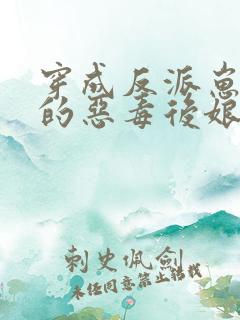 穿成反派崽
的惡毒後娘
刺史佩劍
未经同意禁止转载